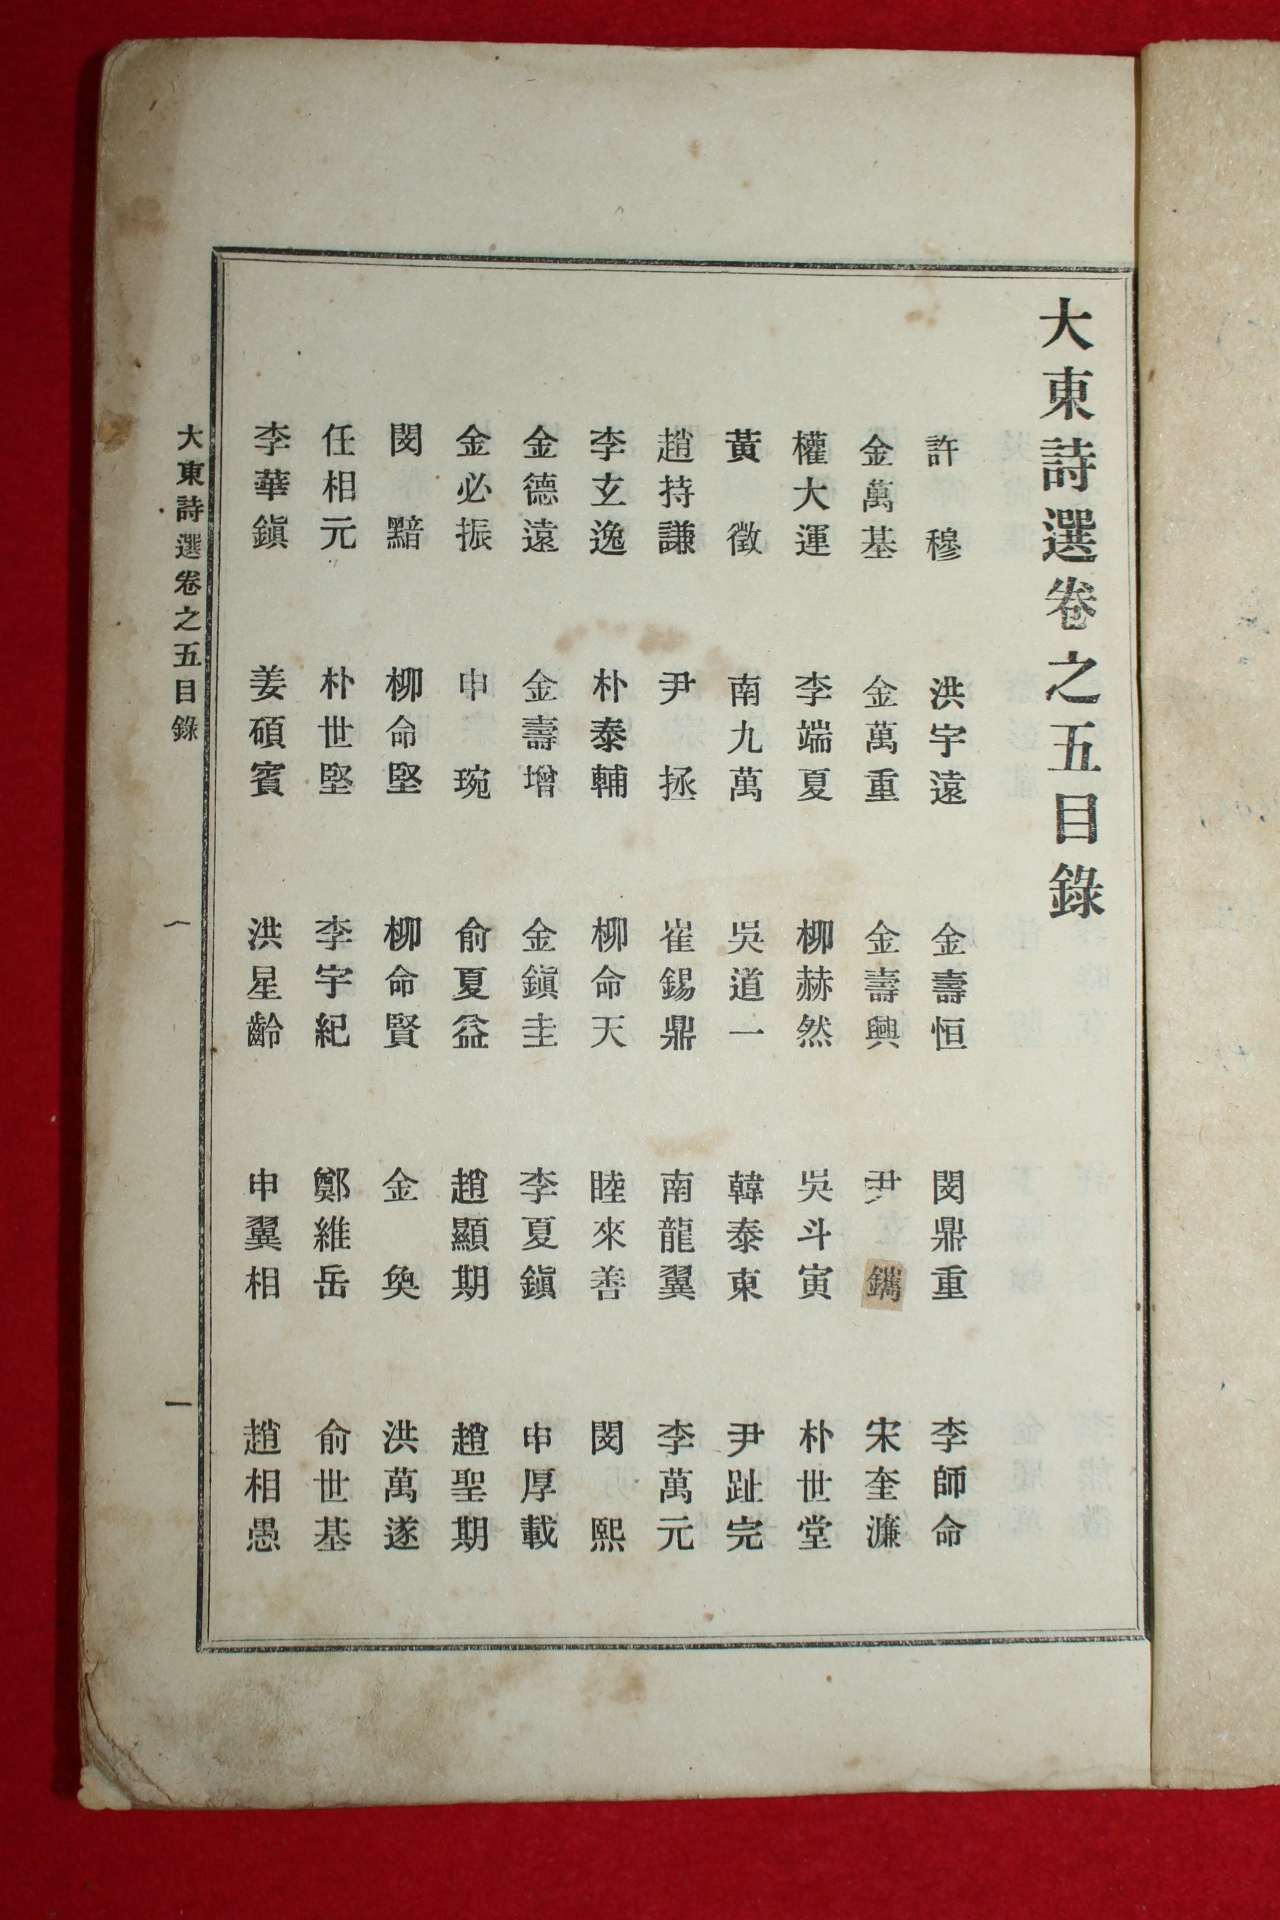 大東詩選卷之五目錄
許穆 洪宇遠 金壽恒 閔鼎重 李師命
金萬基 金萬重 金壽興 尹鑴 宋奎濂
權大運 李端夏 柳赫然 吳斗寅 朴世堂
黃徵 南九萬 吳道一 韓泰東 尹趾完
趙持謙 尹拯 崔錫鼎 南龍翼 李萬元
李玄逸 朴泰輔 柳命天 睦來善 閔熙
金德遠 金壽增 金鎭圭 李夏鎭 申厚載
金必振 申琬 俞夏益 趙顯期 趙聖期
閔黯 柳命堅 柳命賢 金奐 洪萬遂
任相元 朴世堅 李宇紀 鄭維岳 俞世基
李華鎭 姜碩賓 洪星齡 申翼相 趙相愚
大東詩選卷之五目錄 一